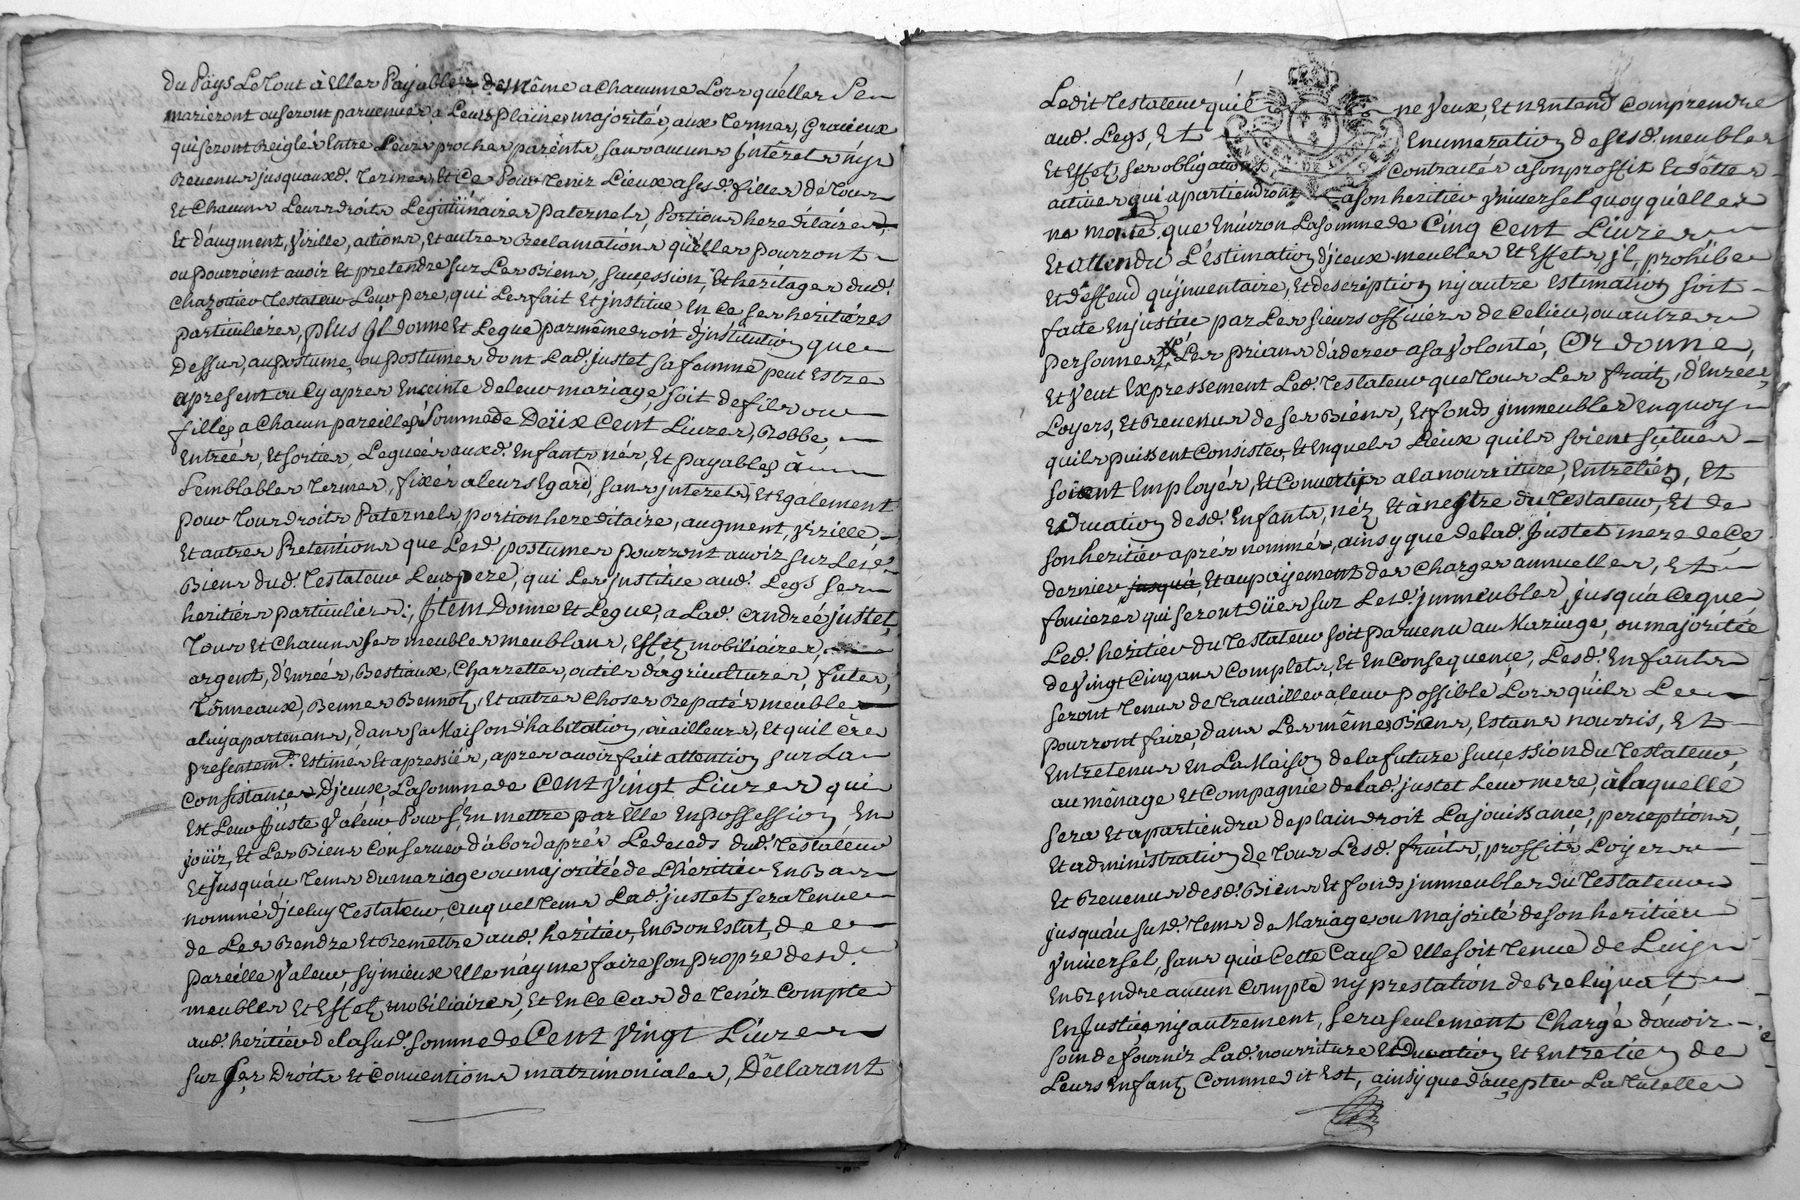 du Païs Le Tout à Elles Payables de Même a Chacunne Lors quélles Se
marieront ou Seront parvenües a Leurs plaines majorités, aux Termes, Gracieux
qui Seront Reiglés Entre Leurs proches parents, Sans aucuns Jntérets nys
Revenus jusquauxd. Termes, Et Ce Pour Tenir Lieux a Sesd. filles de Tous
Et Chacuns Leurs droits Legitimaires paternels, Portions hereditaires,
Et d'augment, Virille, actions, Et autres Reclamations quélles pourront
ou pourroient avoir Et pretendre Sur Les Biens, Sucession, Et héritages dud.
Chazottier Testateur Leur pere, qui Les fait Et jnstitue En Ce Ses heritiéres
particuliéres, plus Jl donne Et Legue par même droit d'jnstitution que
Dessus, au postume, ou postumes dont Lad. justet Sa femme peut Estre
apresent ou Cy apres Enceinte de leur mariage, Soit de fils ou
filles a Chacun pareille Somme de Deüx Cent Livres, Robbe,
Entrées, Et Sorties, Leguées auxd. Enfants nés, Et payables à
Semblables Termes, fixés a leurs Egard, Sans jnterets, Et Egalement
pour Tous droits Paternels, portion hereditaire, augment, Virille
Et autres Pretentions que Lesd. postumes pourront avoir Sur Lesd.
Biens dud. Testateur Leur pere, qui Les jnstitue aud. Legs Ses
heritiers particuliers; Jtem Donne Et Legue, a Lad. Andreé justet,
Tous Et Chacuns Ses meubles meublans, Effets mobiliaires,
argent, d'Enrées, Bestiaux, Charrettes, outils d'agriculture, futes,
Tonneaux, Bennes Bennots, Et autres Choses Reputés meubles
a luy apartenans, dans Sa Maison d'habitation, ou ailleurs, Et quil a
presentemt. Estimés Et apressiés, apres avoir fait attention Sur La
Consistance D'jceux, La Somme de Cent Vingt Livres qui
Est Leur Juste Valeur Pour S'En mettre par Elle En possession, En
joüir, Et Les Biens Conserver d'abord aprés Le deceds dud. Testateur
Et Jusquau Tems du mariage ou majorité de L'héritier En Bas
nommé d'jceluy Testateur, auquel Tems Lad. justet Sera Tenue
de Les Rendre Et Remettre aud. heritier, En Bon Estat, de
pareille Valeur, Sy mieux Elle n'ayme faire Son propre desd.
meubles Et Effets mobiliaires, Et En Ce Cas de Tenir Compte
aud. héritier de la Susd. Somme de Cent Vingt Livres
Sur Ses Droits Et Conventions matrimoniales, Déclarant
Ledit Testateur quil ne Veux, Et n'Entend Comprendre
aud. Legs, Et Enumeration de Sesd. meubles
Et Effets Ses obligations Contractés a Son proffit Et dettes
actives qui apartiendront a Son heritier Vniversel quoy quélles
ne monte que Environ La Somme de Cinq Cent Livres
Et attendu L'estimation d'jceux meubles Et Effets jl, prohibe
Et déffend qu'jnventaire, Et description ny autre Estimation Soit
faite En justice par Les Sieurs officiérs de Ce lieu, ou autres
personnes Les priant d'aderer a Sa Volonté, Or donne,
Et Veut Expressement Led. Testateur que Tous Les fruits, d'Enrées,
Loyers, Et Revenus de Ses Biéns, Et fonds jmmeubles En quoy
quils puissent Consister, Et En quels Lieux quils Soient Situés
Soient Employés, Et Convertis a la nourriture, Entretién, Et
Education desd. Enfants, nés Et à nestre du Testateur, Et de
Son heritiér aprés nommés, ainsy que de lad. Justet mere de Ce
dernier, jusqua, Et au payement des Charges annuelles, Et
foncieres qui Seront düës Sur Lesd. jmmeubles, jusqu'a Ce que
Led. heritiér du Testateur Soit parvenu au Mariage, ou majoritée
de Vingt Cinq ans Complets, Et En Consequençe, Lesd. Enfants
Seront Tenus de Travailler a leur possible Lors quils Le
pourront faire, dans Les mêmes Biens, Estans nourris, Et
Entretenus En La Maison de la future Succession du Testateur,
au ménage Et Compagnie de lad. justet Leur mere, à laquelle
Sera Et apartiendra de plain droit La jouissance, perception,
Et administration de Tous Lesd. fruits, proffits, Loyers
Et Revenus desd. Biens Et fonds jmmeubles du Testateur
jusqu'au Susd. Tems de Mariage ou Majorité de Son heritiér
Vniversel, Sans qu'a Cette Cause Elle Soit Tenue de Luy
En Rendre aucun Compte ny prestation de Reliquat,
En Justice ny autrement, Sera Seulement Chargé d'avoir
Soin de fournir Lad. nourriture Education Et Entretien de
Leurs Enfants Comme dit Est, ainsy que d'accepter La Tutelle